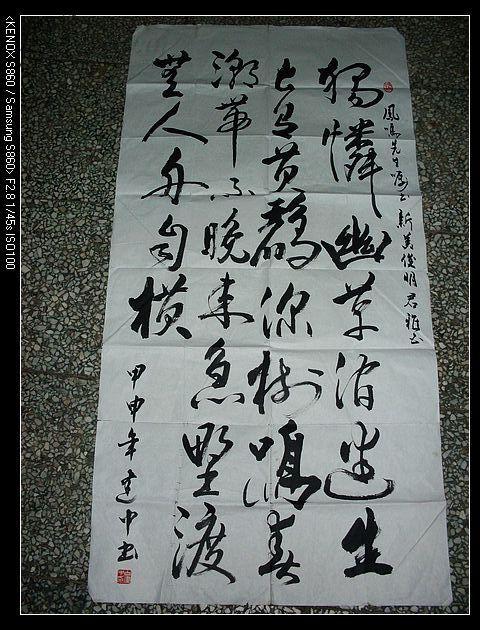 <KENOX S860 / Samsung S860> F2.8 1/45s ISO100
鳳鳴先生囑
獨憐幽草澗邊生
上有黃鸝深樹鳴春
潮帶雨晚來急野渡
無人舟自橫
甲申年中書